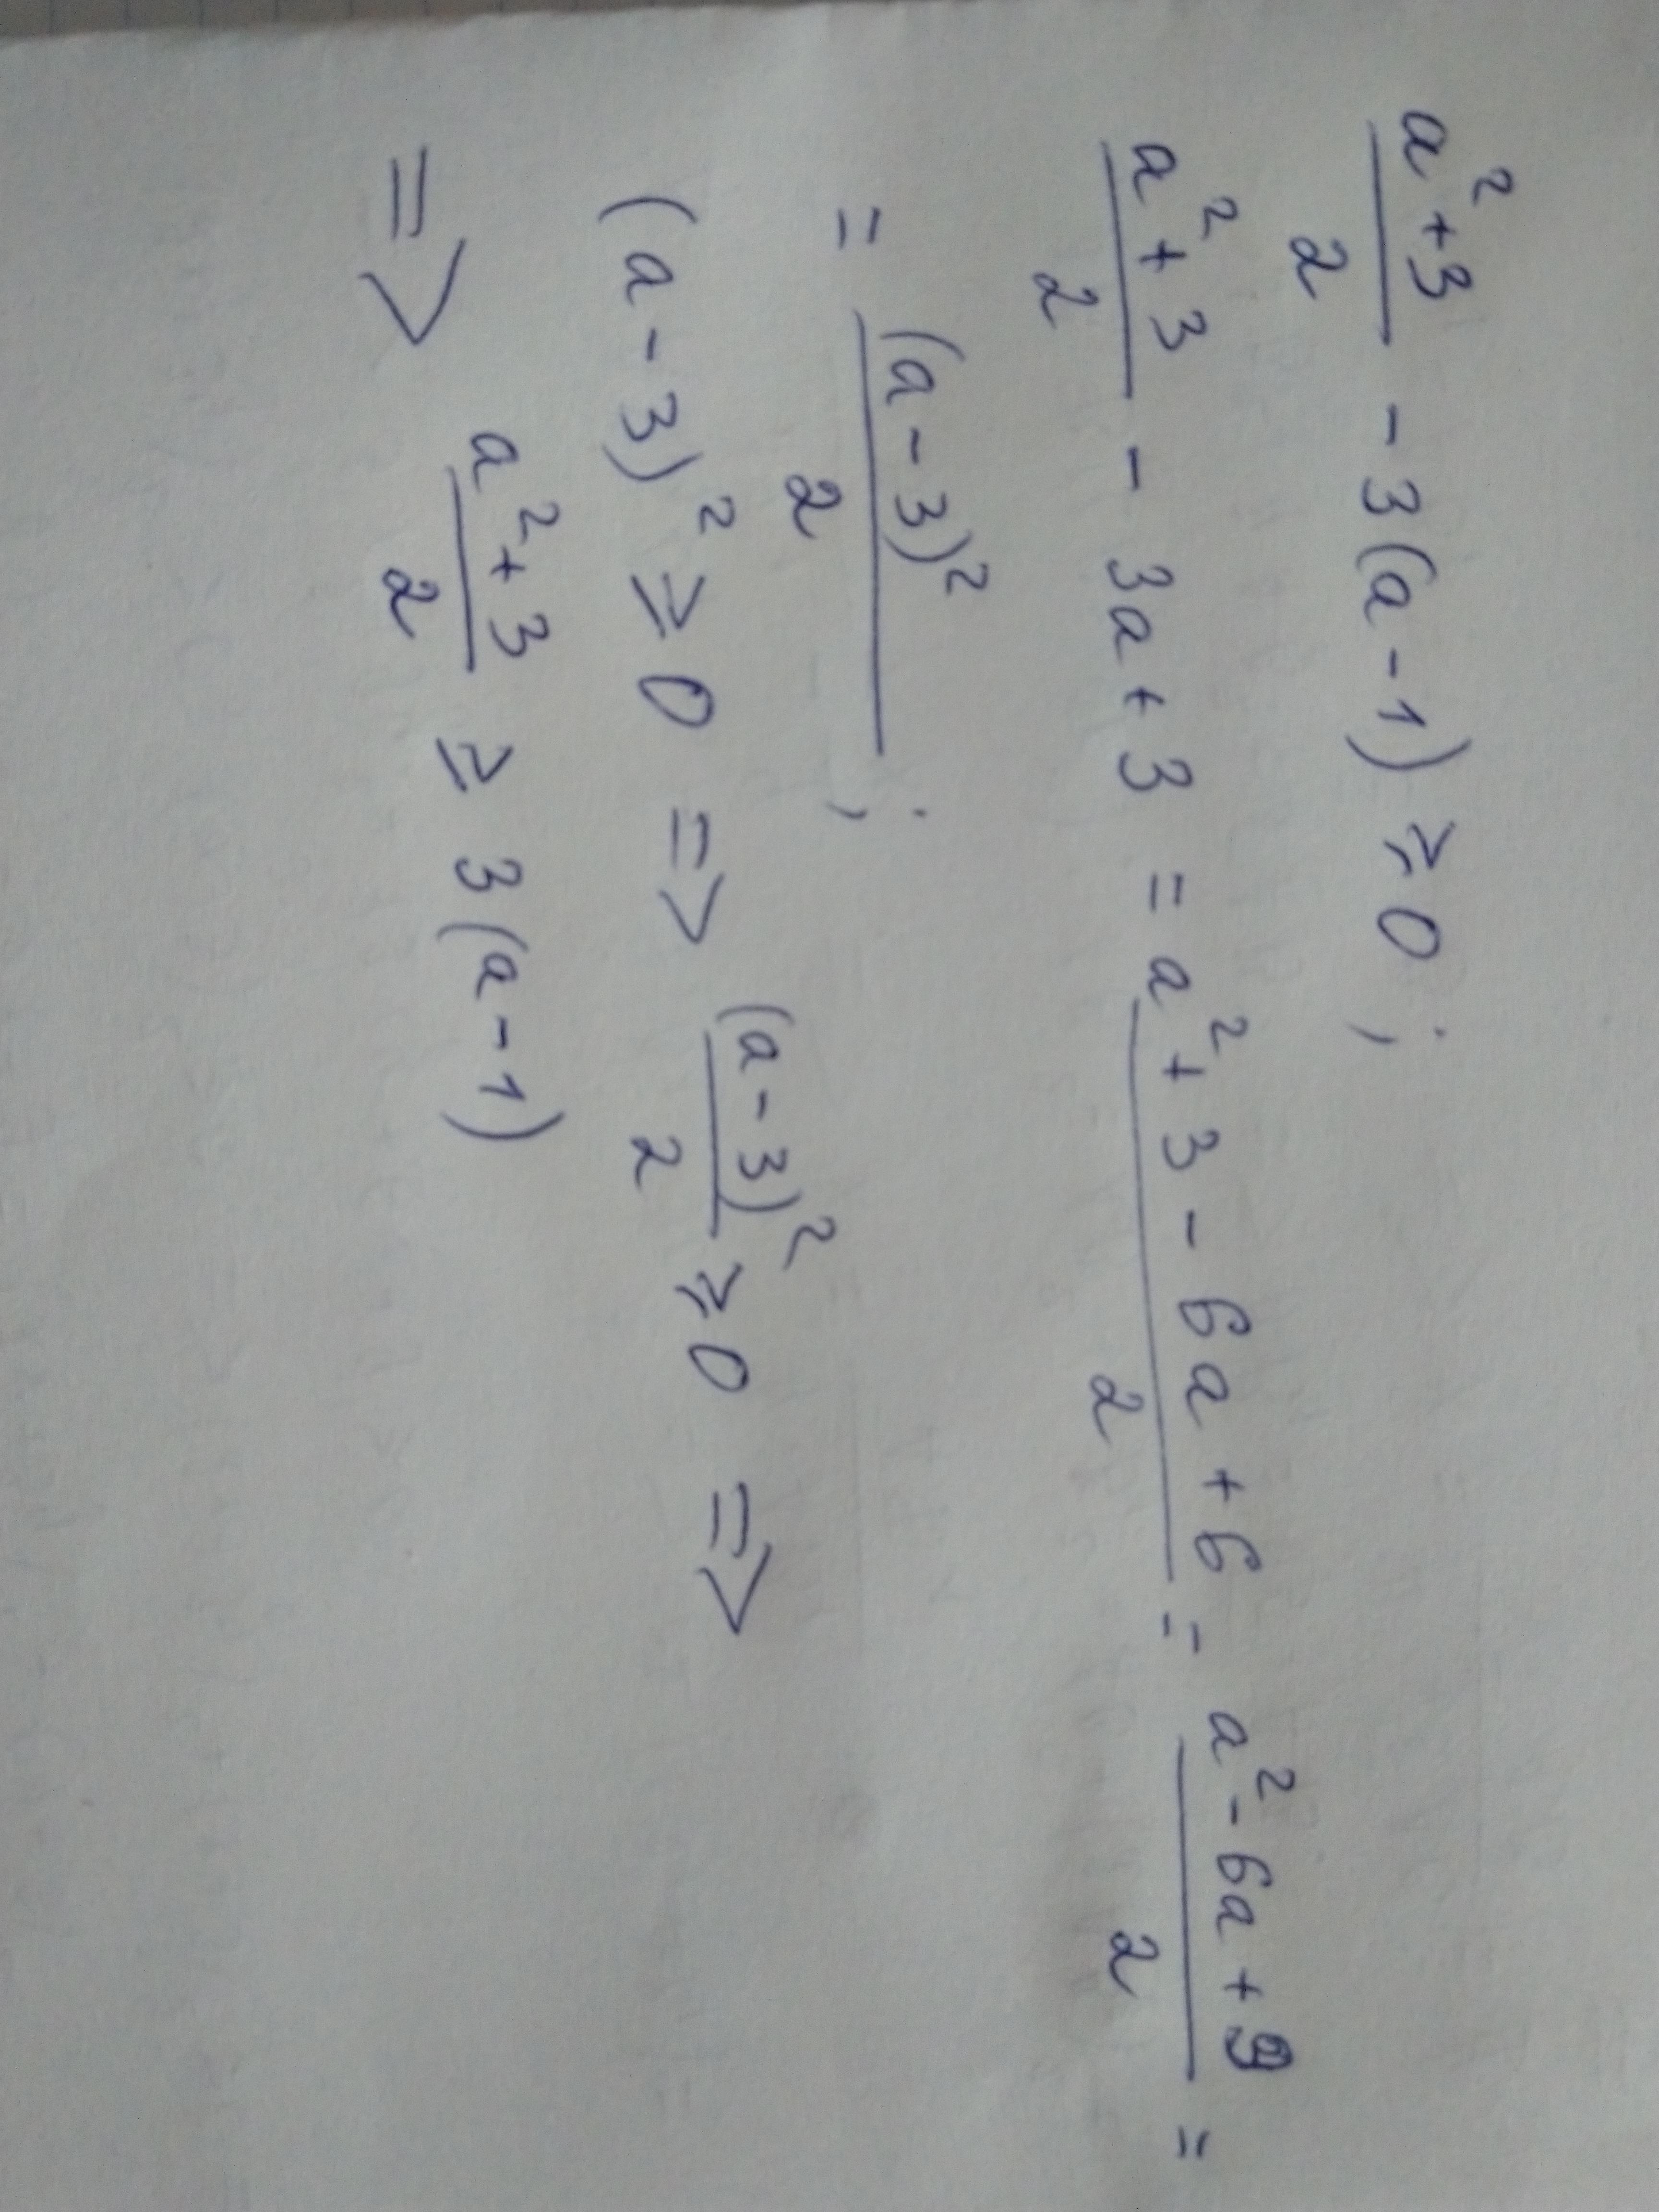 (a²+3)/2 - 3(a-1) ⩾ 0;
(a²+3)/2 - 3a+3 = (a²+3-6a+6)/2 = (a²-6a+9)/2 =
= (a-3)²/2;
(a-3)² ⩾ 0 => (a-3)²/2 ⩾ 0 =>
=> (a²+3)/2 ≥ 3(a-1)